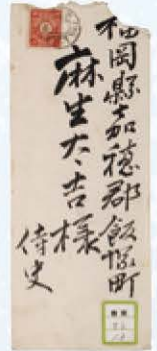 福岡縣嘉穂郡飯塚町
麻生太吉様
侍史